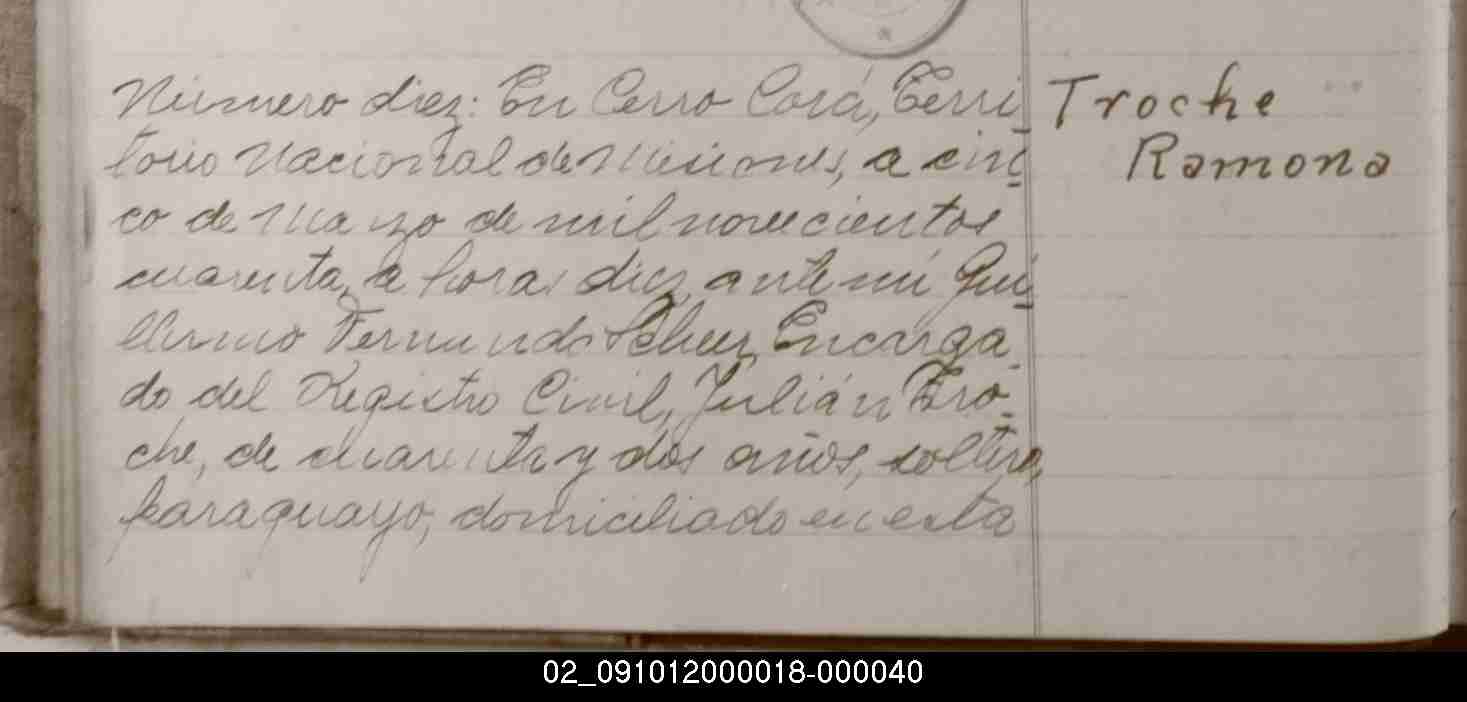 Número diez: En Cerro Corá, Terri_
torio Nacional de Misiones, a cin_
co de Marzo de mil novecientos
cuarenta, a horas diez, ante mí Gui_
llermo Fernando Encarga_
do del Registro Civil, Julián Tro_
che, de cuarenta y dos años, soltero,
paraguayo, domiciliado en esta
Troche
Ramona
02_091012000018-000040